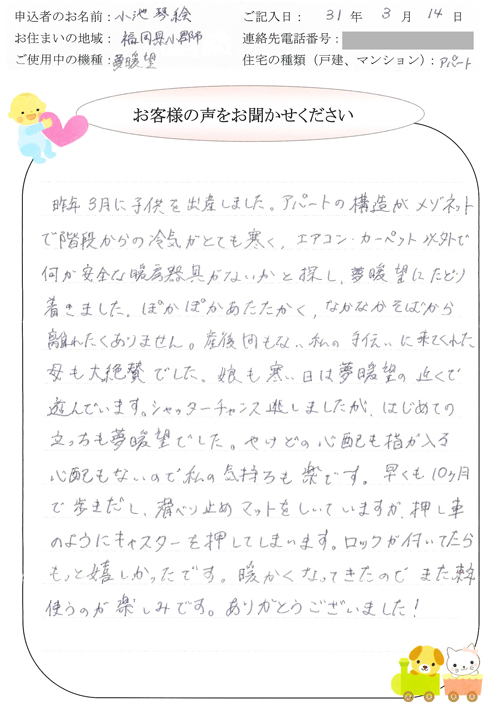 申込者のお名前：小池琴絵
ご記入日： 31 年 3 月 14 日
お住まいの地域：福岡県小郡市
連絡先電話番号：
ご使用中の機種：夢暖望
住宅の種類（戸建、マンション）：アパート
お客様の声をお聞かせください
昨年3月に子供を出産しました。アパートの構造がメゾネット
で階段からの冷気がとても寒く、エアコン・カーペット以外で
何か安全な暖房器具がないかと探し、夢暖望にたどり
着きました。ぽかぽかあたたかく、なかなかそばから
離れたくありません。産後間もない私の手伝いに来てくれた
母も大絶賛でした。娘も寒い日は夢暖望の近くで
遊んでいます。シャッターチャンス逃しましたが、はじめての
立っちも夢暖望でした。やけどの心配も指が入る
心配もないので私の気持ちも楽です。早くも10ヶ月
で歩きだし、滑べり止めマットをしいていますが、押し車
のようにキャスターを押してしまいます。ロックが付いてたら
もっと嬉しかったです。暖かくなってきたので また来年
使うのが楽しみです。ありがとうございました！